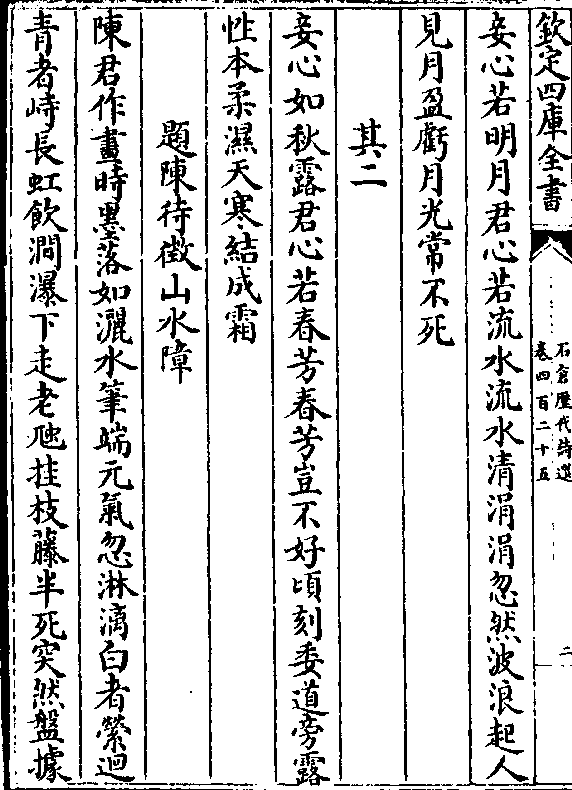 欽定四庫全書
石倉歷代詩選
卷四百二十五
二
妾心若明月君心若流水流水清涓涓忽然波浪起人
見月盈虧月光常不死
其二
妾心如秋露君心若春芳春芳豈不好頃刻委道旁露
性本柔濕天寒結成霜
題陳待徵山水障
陳君作畫時墨落如灑水筆端元氣忽淋漓白者縈迴
青者峙長虹飲澗瀑下走老虺挂枝藤半死突然盤據